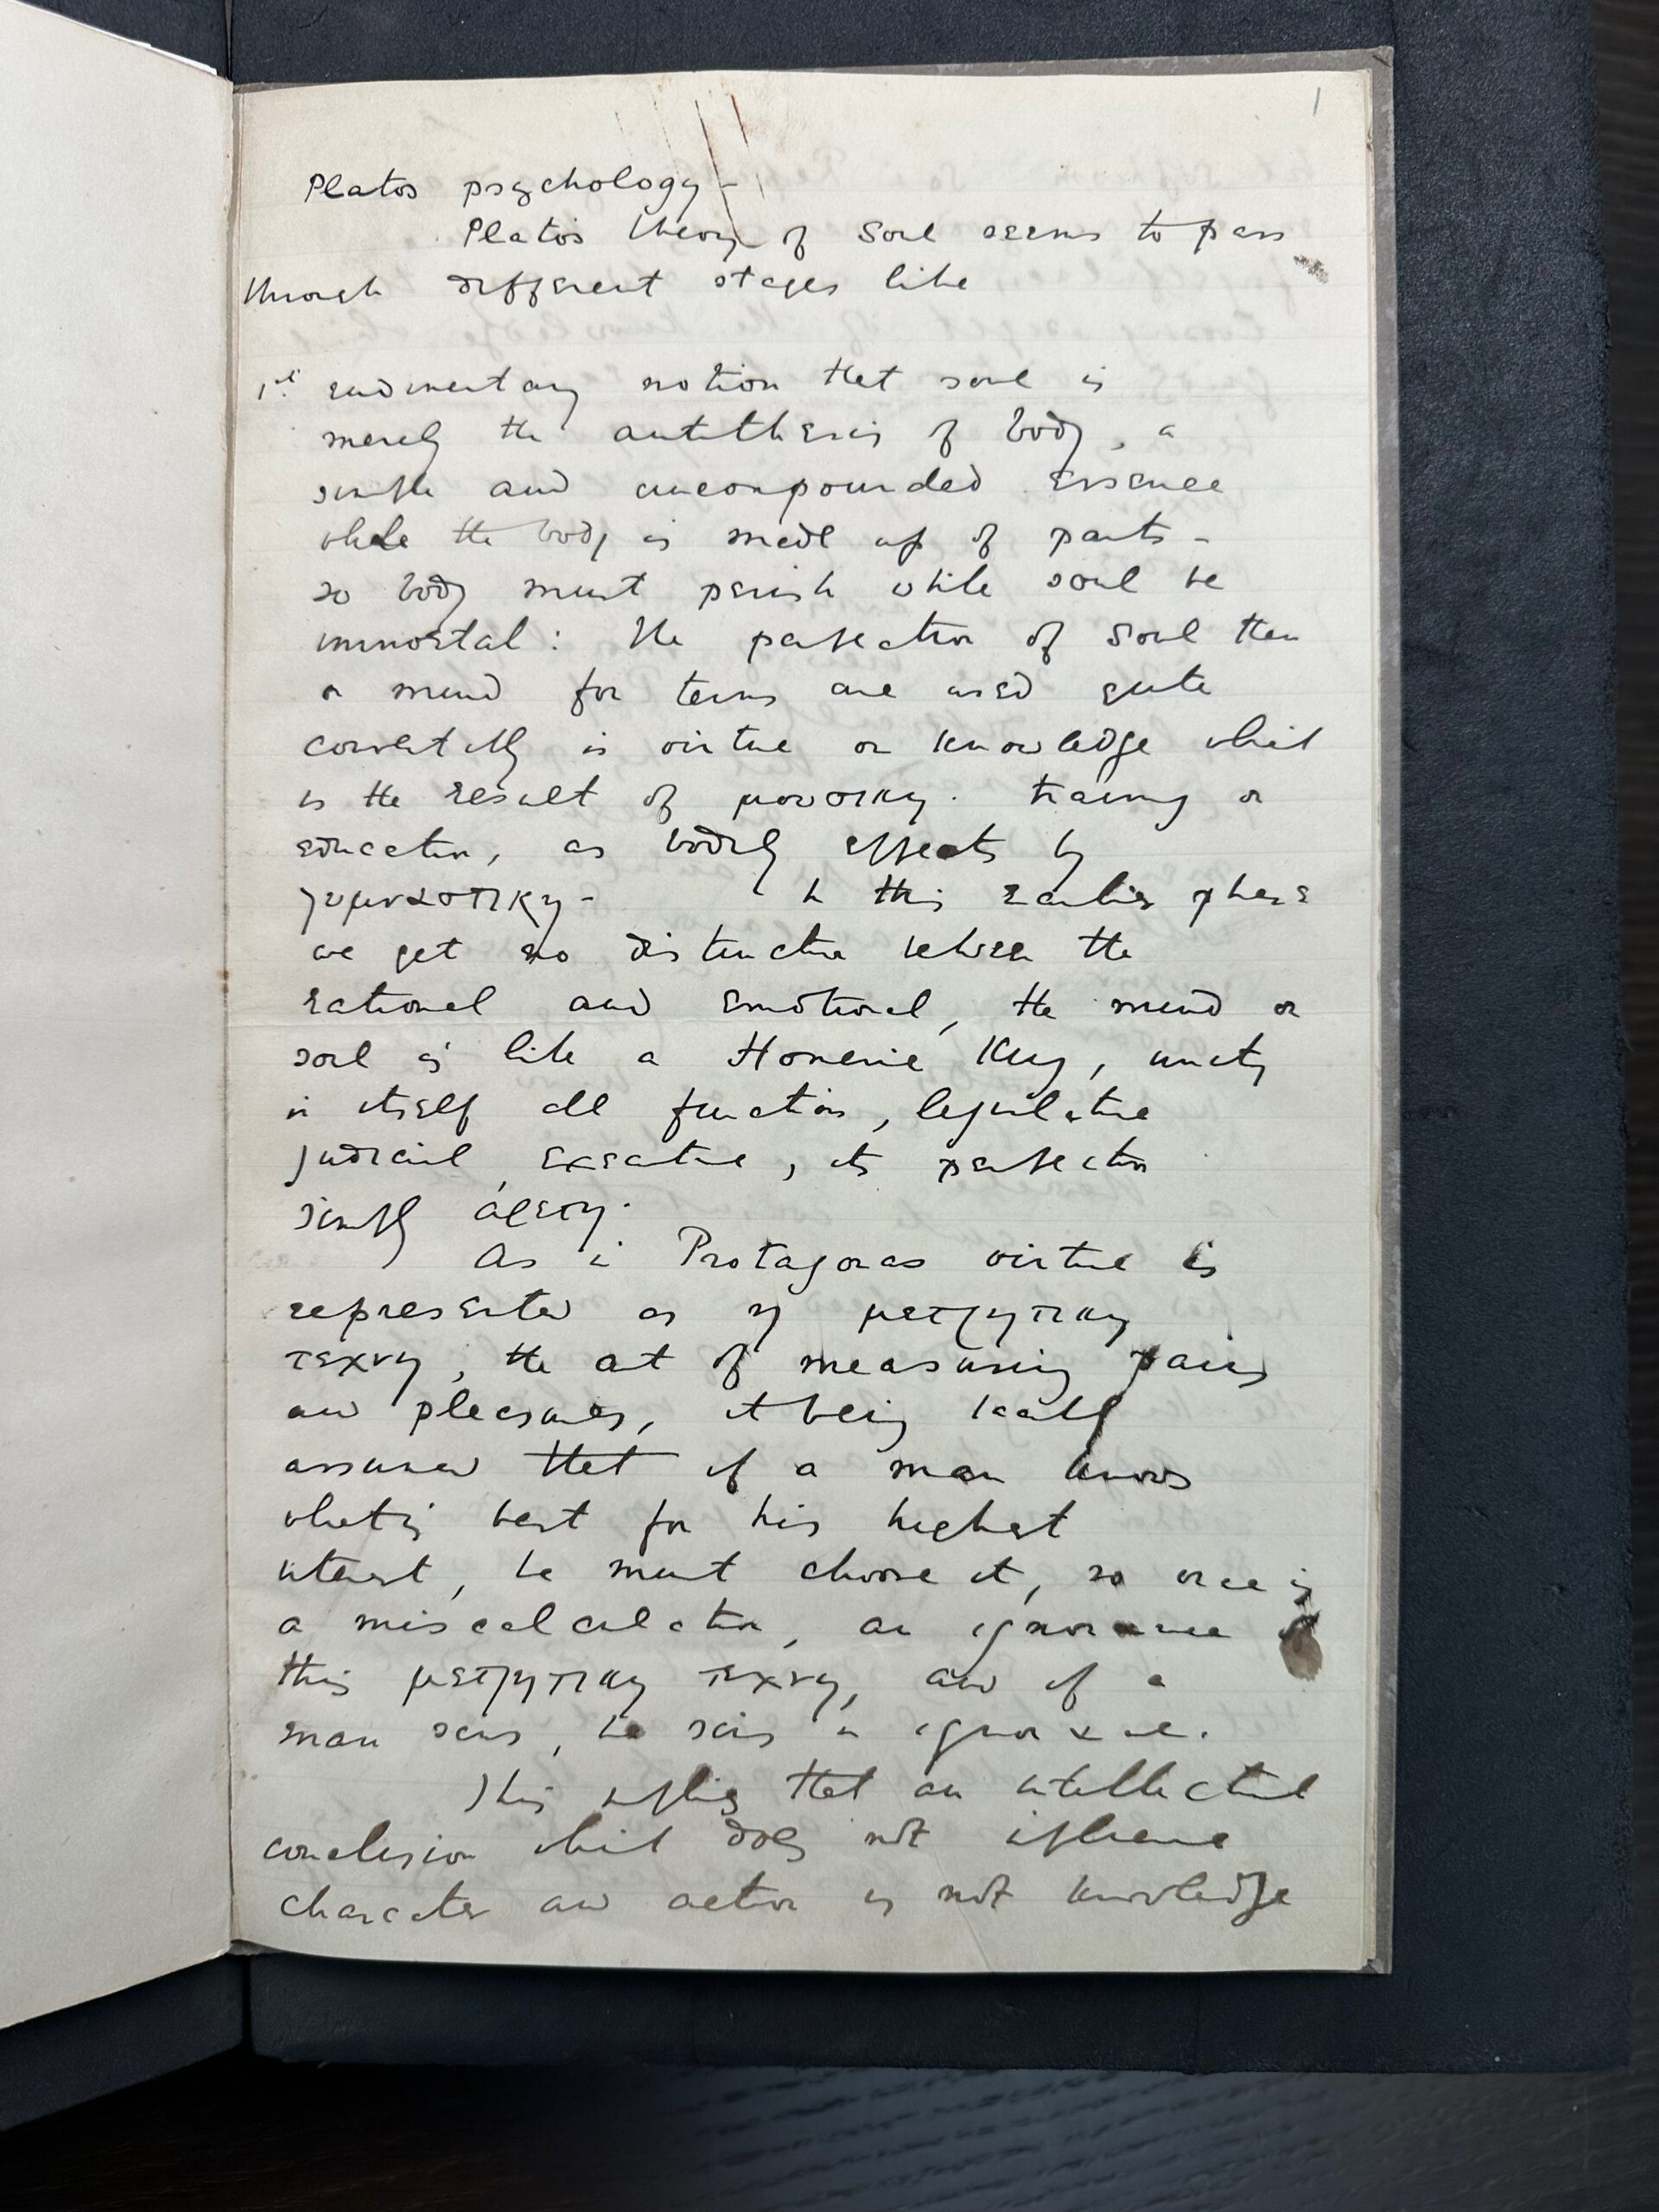 1
Platos psychology –
Plato's theory of Soul seems to pass
through different stages like
1st rudimentary notion that soul is
merely the antithesis of body, a
simple and uncompounded essence
while the body is made up of parts –
so body must perish while soul be
immortal: the perfection of soul then
or mind for terms are used quite
is virtue or knowledge which
is the result of μουσικη. training or
education, as bodily effects by
γυμναστικη – In this earlier phase
we get no distinction between the
rational and emotional, the mind or
soul is like a Homeric King, uniting
in itself all function, legislative
judicial, executive, its perfection
simply ἀρετη.
As in Protagoras virtue is
represented as η μετρητικη
τεχνη, the art of measuring pains
and pleasures, it being
assumed that if a man knows
what is best for his highest
interest, he must choose it, so vice is
a miscalculation, an ignorance of
this μετρητικη τεχνη, and if a
man sins, he sins in ignorance.
This implies that an intellectual
conclusion which does not influence
character and action is not knowledge